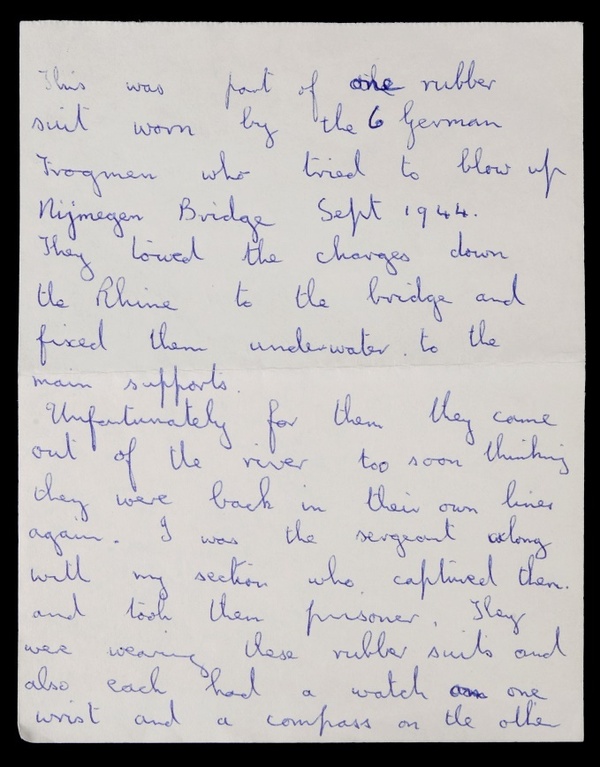 This was part of one rubber
suit worn by the 6 German
Frogmen who tried to blow up
Nijmegen Bridge Sept 1944.
They towed the charges down
the Rhine to the bridge and
fixed them underwater to the
main supports.
Unfortunately for them they came
out of the river too soon thinking
they were back in their own lines
again. I was the sergeant along
with my section who captured them.
and took them prisoner. They
were wearing these rubber suits and
also each had a watch on one
wrist and a compass on the other